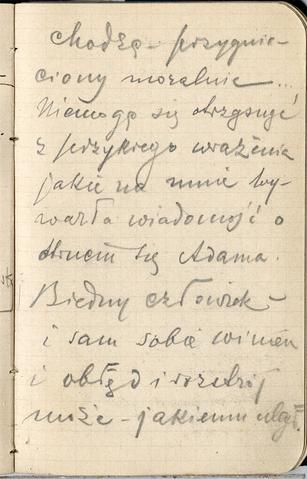 chodzę - przygnie-
ciony moralnie...
Niemogę się otrząsnąć
z przykrego wrażenia
jakie na mnie wy-
warła wiadomość o
otruciu się Adama.
Biedny człowiek -
i sam sobie winien
i obłęd i rozstrój
może - jakiemu uległ.